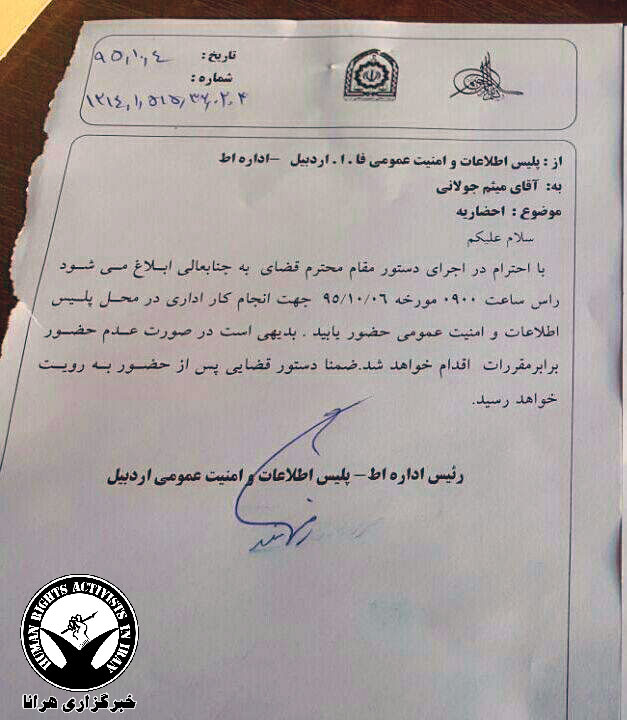 تاریخ: ۹۵,۱۰,۴
شماره:
از: پلیس اطلاعات و امنیت عمومی فا.ا.اردبیل -اداره اط
به: آقای میثم جولانی
موضوع : احضاریه
سلام علیکم
با احترام در اجرای دستور مقام محترم قضای به جنابعالی ابلاغ می شود
راس ساعت ۰۹۰۰ مورخه ۹۵/۱۰/۰۶ جهت انجام کار اداری در محل پلیس
اطلاعات و امنیت عمومی حضور یابید . بدیهی است در صورت عدم حضور
برابرمقررات اقدام خواهد شد.ضمنا دستور قضایی پس از حضور به رویت
خواهد رسید.
رئیس اداره اط- پلیس اطلاعات و امنیت عمومی اردبیل
HUMAN RIGHTS ACTIVISTS IN IRAN
خبرگزاری هرانا